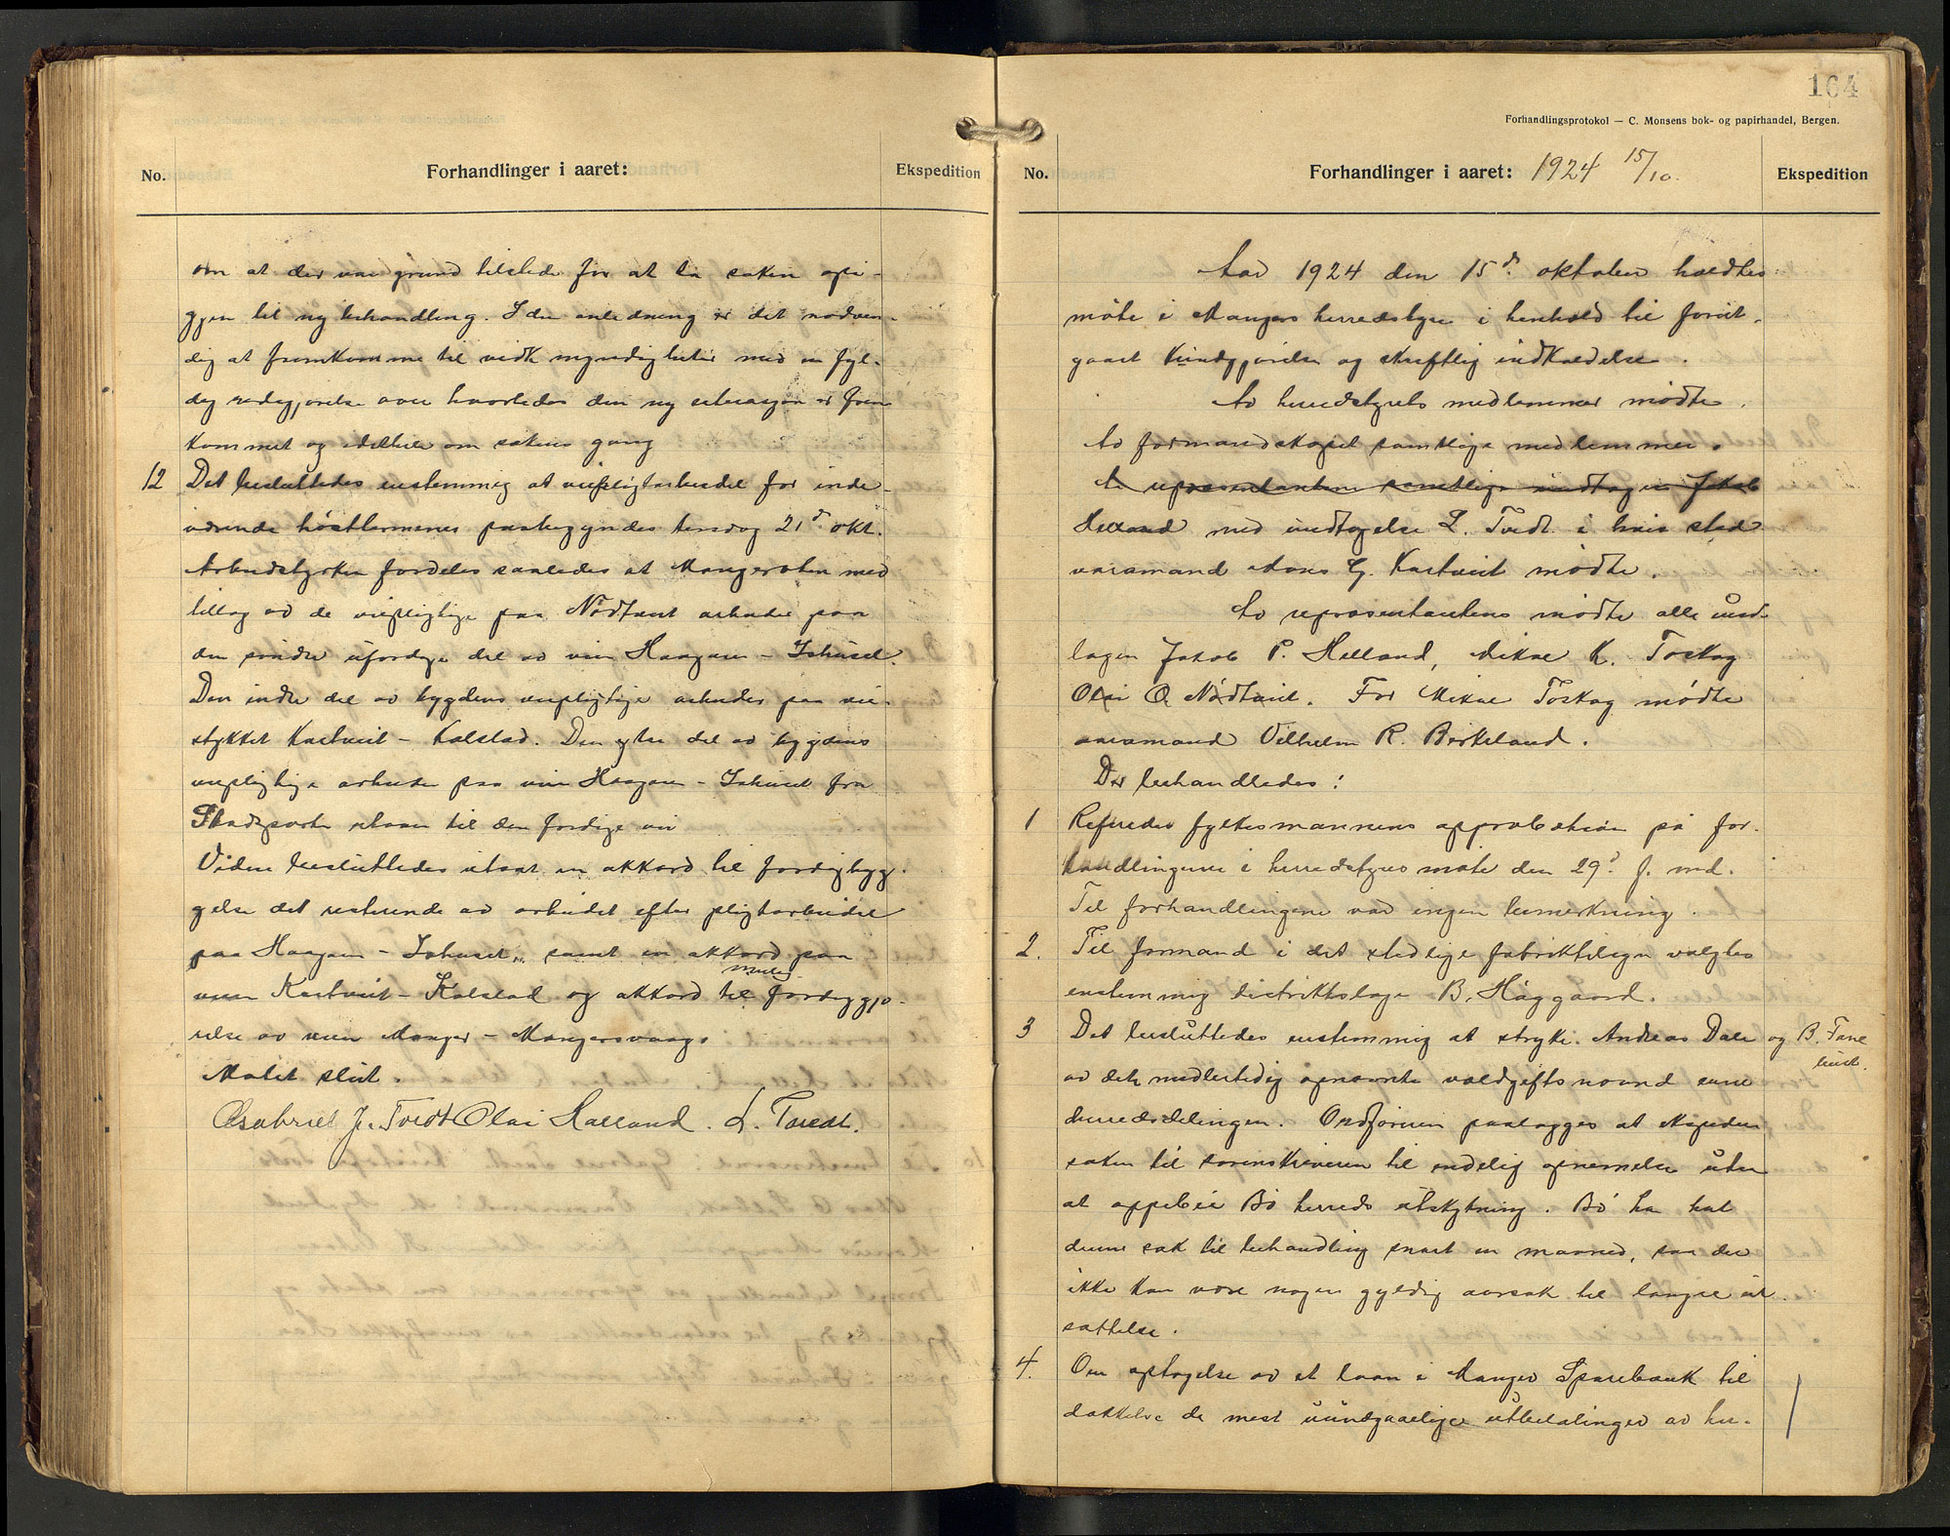 No.
Forhandlinger i aaret:
Ekspedition
om at der var grund tilstede for at ta saken opi-
gjen til ny behandling. I den anledning er det nødven-
dig at fremkomme til vedk myndigheter med en fyl-
dig redegjørelse over hvorledes den ny situasjon er frem
kommet og idethele om sakens gang
12 Det besluttedes enstemmig at veipligtarbeidet for inde-
værende høsttermines paabegyndes tirsdag 21de okt.
Arbeidstyrken fordeles saaledes at Mangerroten med
tillæg av de veipligtige paa Nødtveit arbeider paa
den søndre uferdige del av veien Haagaue - Ishuset.
Den indre del av bygdens veipligtige arbeider paa vei-
stykket Kartveit - Kolstad. Den ytre del av bygdens
veipligtige arbeider paa veien Haagaue - Ishuset fra
til den færdige vei
Videre besluttedes utsat en akkord til færdigbyg-
gelse det resterende av arbeidet efter pligtarbeidet
paa Haagaue - Ishuset, samt en akkord paa
veien Kartveit - Kolstad og akkord til mulig færdiggjø-
relse av veien Manger - Mangersvaag.
Møtet slut.
Gabriel J. Tvedt Olai Halland. L. Tvedt.
164
Forhandlingsprotokol — C. Monsens bok- og papirhandel, Bergen.
No.
Forhandlinger i aaret: 1924 15/10.
Ekspedition
Aar 1924 den 15de oktober holdtes
møte i Mangers herredstyre i henhold til forut-
gaaet kundgjørelse og skriftlig indkaldelse.
Av herredstyrets medlemmer mødte.
Av formandskapet samtlige medlemmer.
Av repræsentantene samtlige undtagen Jakob
Helland med undtagelse L. Tvedt i hvis sted
varamand Mons G. Kartveit mødte.
Av repræsentantene mødte alle und-
tagen Jakob P. Helland, Mikal K. Toskag
Olai O. Nødtveit. For Mikal Toskag mødte
varamand Vilhelm R. Birkeland.
Der behandledes:
1 Refereder fylkesmannens approbation på for-
handlingene i herredstyres møte den 29de f. md.
Til forhandlingene var ingen bemerkning.
2. Til formand i det stedlige fabriktilsyn valgtes
enstemmig distriktslæge B. Haggaard.
3 Det besluttedes enstemmig at stryke Andreas Dale og B. Tvedt
av det midlertidig opnævnte voldgiftsnævnd
herredsdelingen. Ordføreren paalægges at ekspedere
saken til sorenskriveren til endelig opnævnelse uten
at oppebie Bø herreds utskytning. Bø har hat
denne sak til behandling snart en maaned, saa der
ikke kan være nogen gyldig aarsak til længre ut-
sættelse.
4. Om optagelse av et laan i Manger Sparebank til
dækkelse de mest uundgaaelige utbetalinger av her-